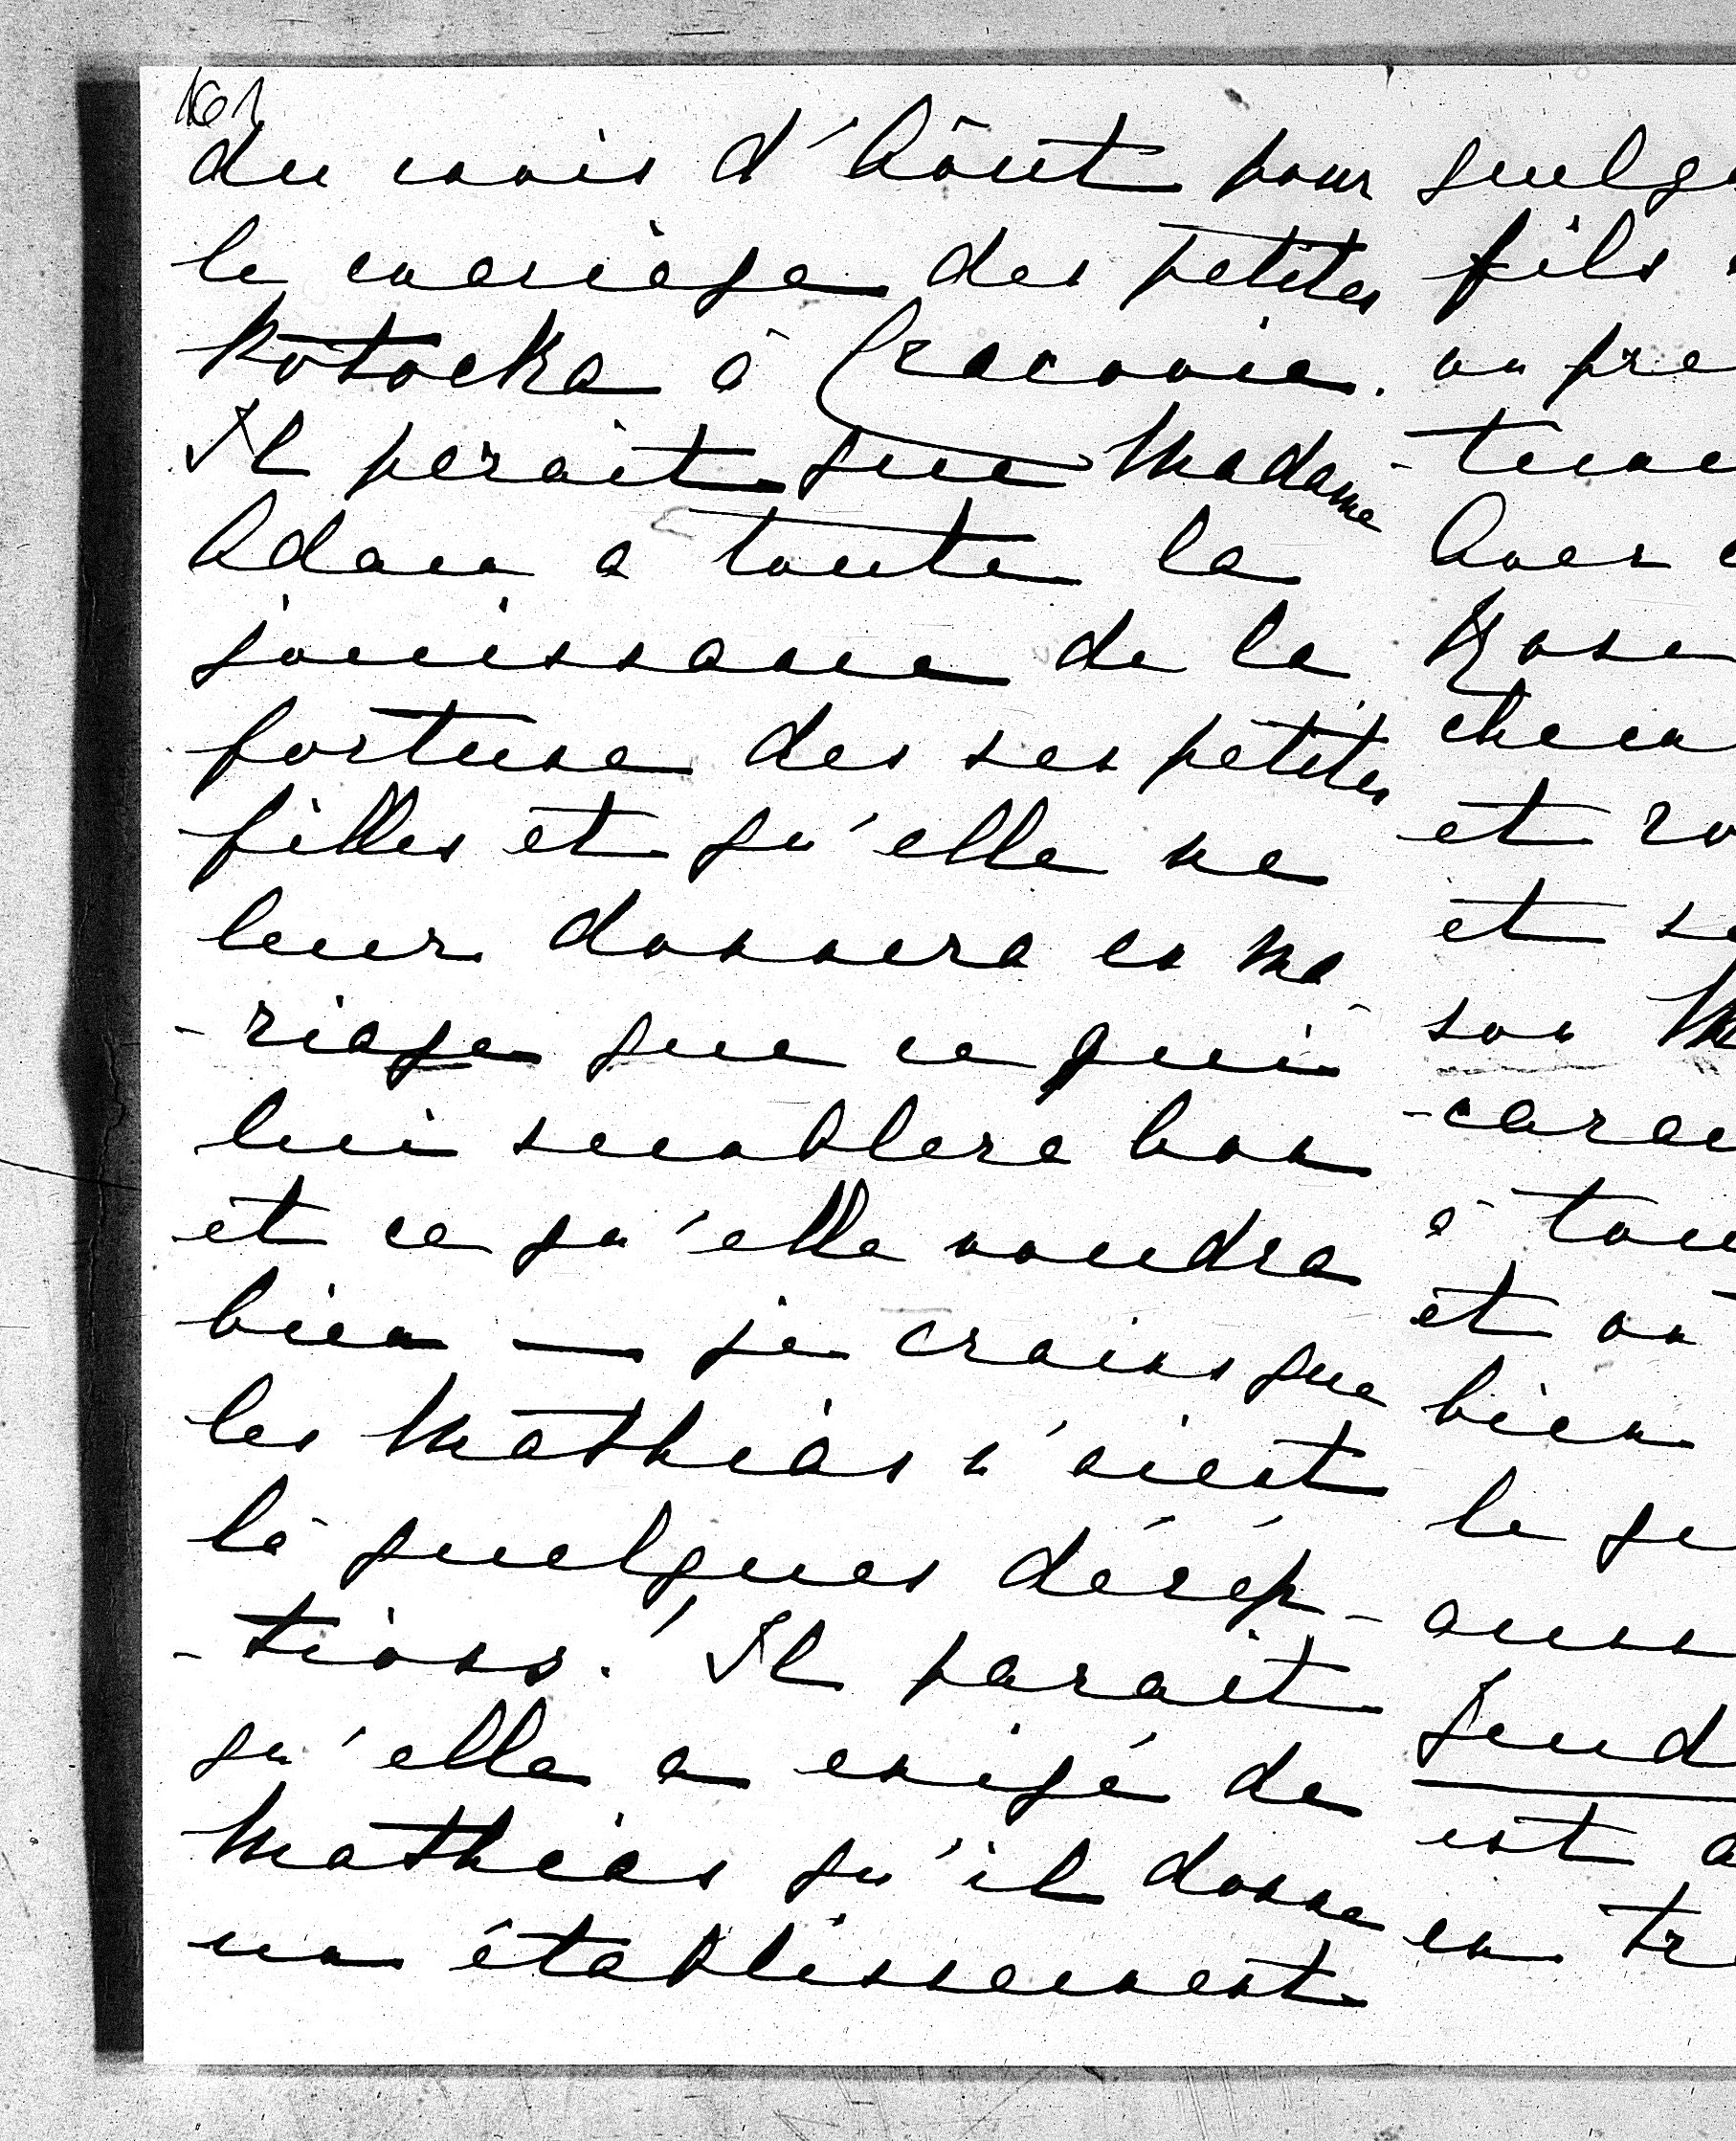 161
du mois d'Août pour
le mariage des petites
Potocka à Cracovie.
Il parait que Madame
Adam a toute la
jouissance de la
fortune des ses petites
filles et qu'elle ne
leur donnera en ma
-riage que ce qui
lui semblera bon
et ce qu'elle voudra
bien — je crains que
les Mathias n'aient
là quelques décép-
-tions! Il parait
qu'elle a exigé de
Mathias qu'il donne
un établissement
fils
on pre
et
et
son
à
et on
bien
le
est
en